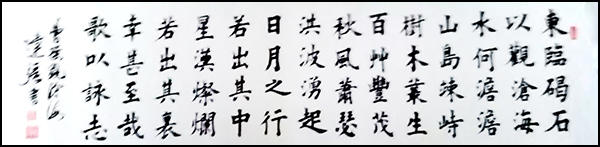 東臨碣石
以觀滄海
水何澹澹
山島竦峙
樹木叢生
百艸豐茂
秋風蕭瑟
洪波湧起
日月之行
若出其中
星漢燦爛
若出其裏
幸甚至哉
歌以詠志